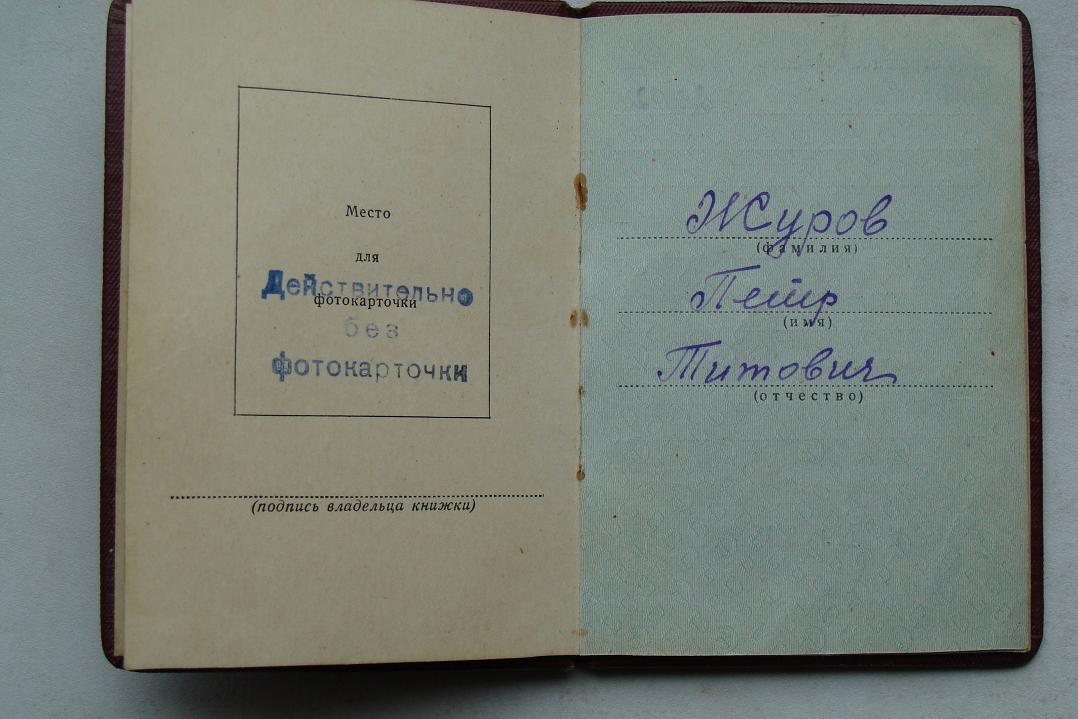 Место
для
фотокарточки
Действительно
без
фотокарточки
(подпись владельца книжки)
Журов
(фамилия)
Петр
(имя)
Титович
(отчество)